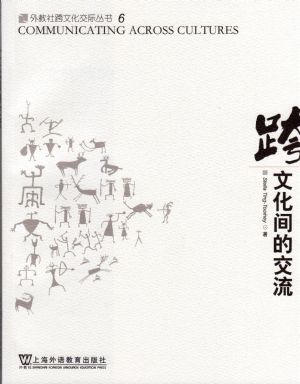 外教社跨文化交际丛书 6
COMMUNICATING ACROSS CULTURES
跨
文化间的交流
Stella Ting-Toomey 著
上海外语教育出版社
外教社 SHANGHAI FOREIGN LANGUAGE EDUCATION PRESS